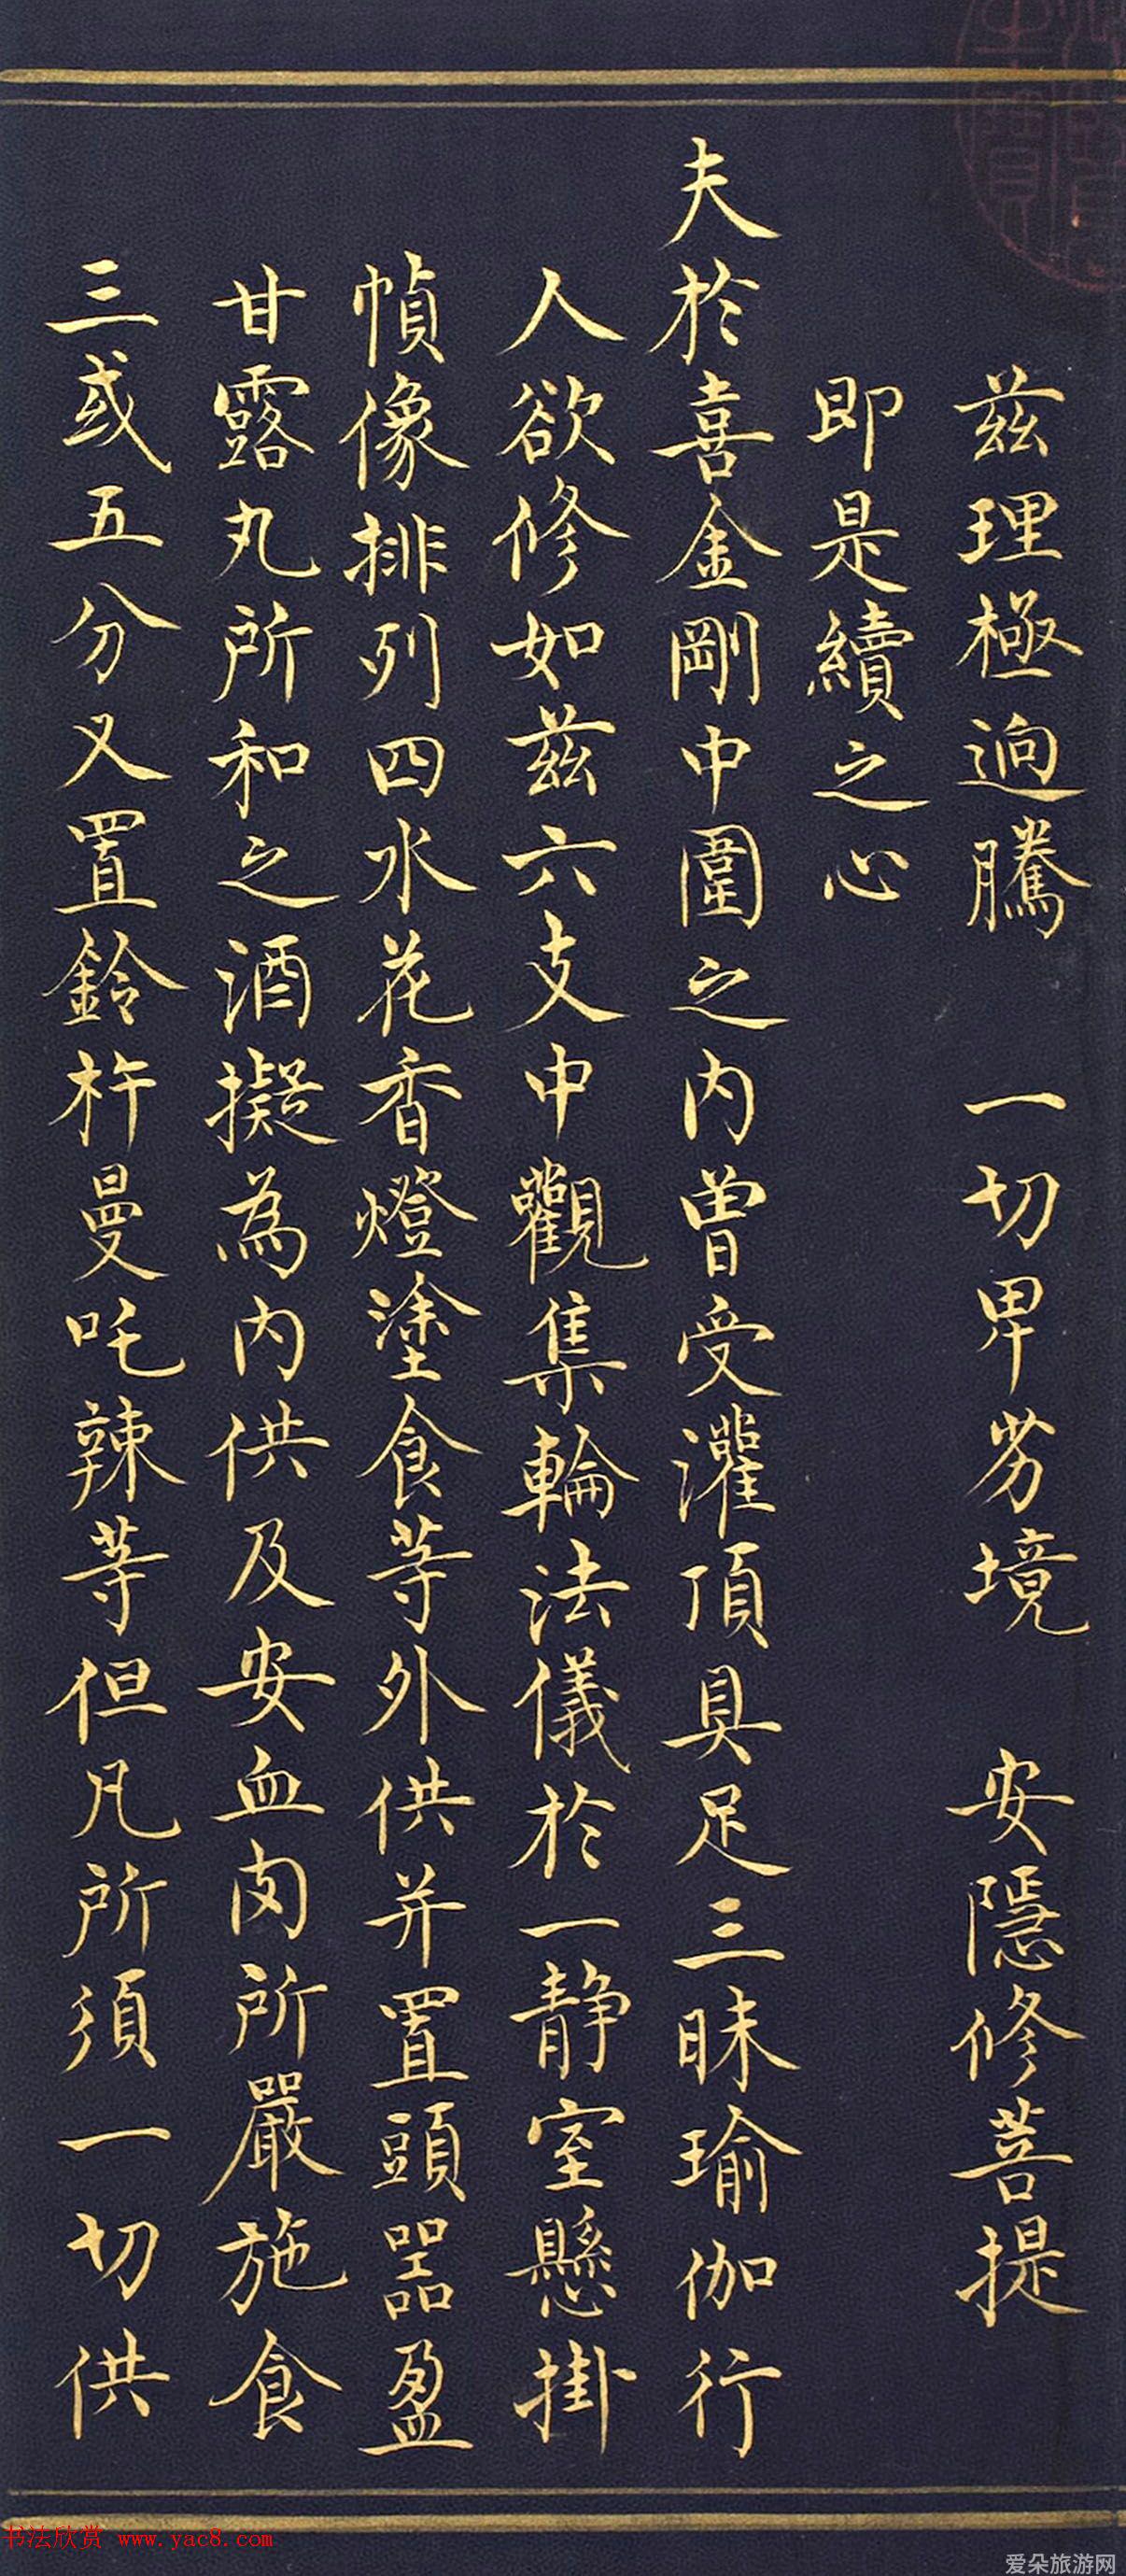 茲理極逈騰　一切卑劣境　安隱修菩提
即是續之心
夫於喜金剛中圍之内曾受灌頂具足三昧瑜伽行
人欲修如茲六支中觀集輪法儀於一静室懸掛
幀像排列四水花香燈塗食等外供并置頭器盈
甘露丸所和之酒擬為内供及安血肉所嚴施食
三或五分又置鈴杵曼吒辣等但凡所須一切供
书法欣赏 www.yac8.com
爱朵旅游网